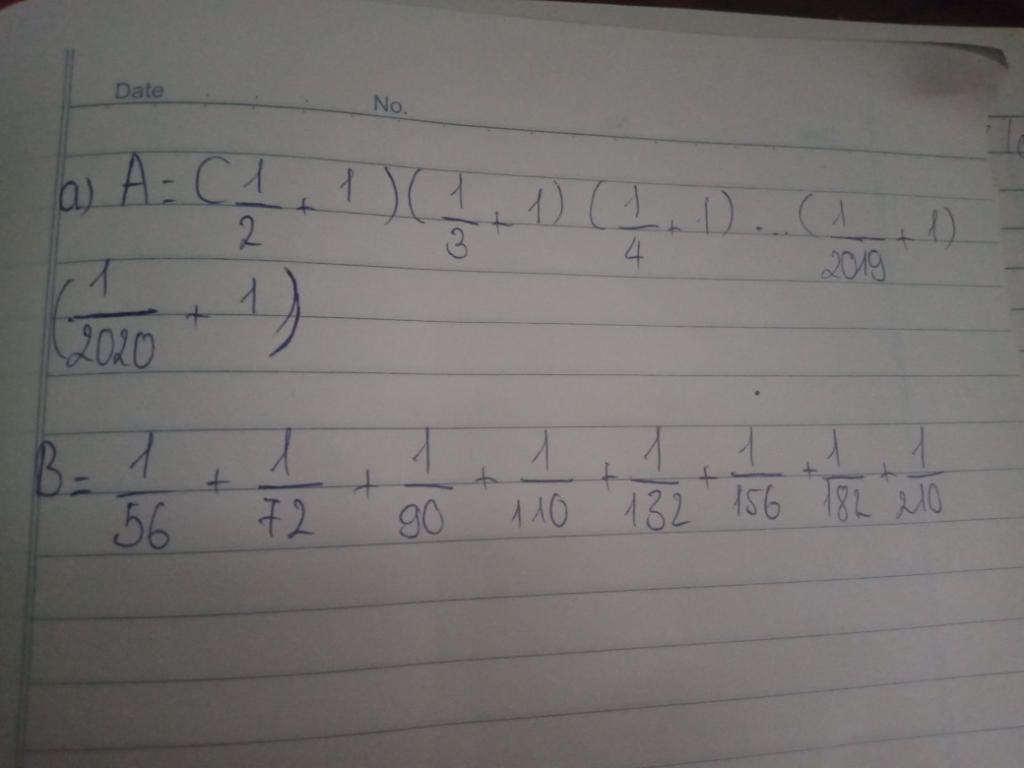 Date No.
a) A = (1/2 + 1)(1/3 + 1)(1/4 + 1)...(1/2019 + 1)
(1/2020 + 1)
B = 1/56 + 1/72 + 1/90 + 1/110 + 1/132 + 1/156 + 1/182 + 1/210